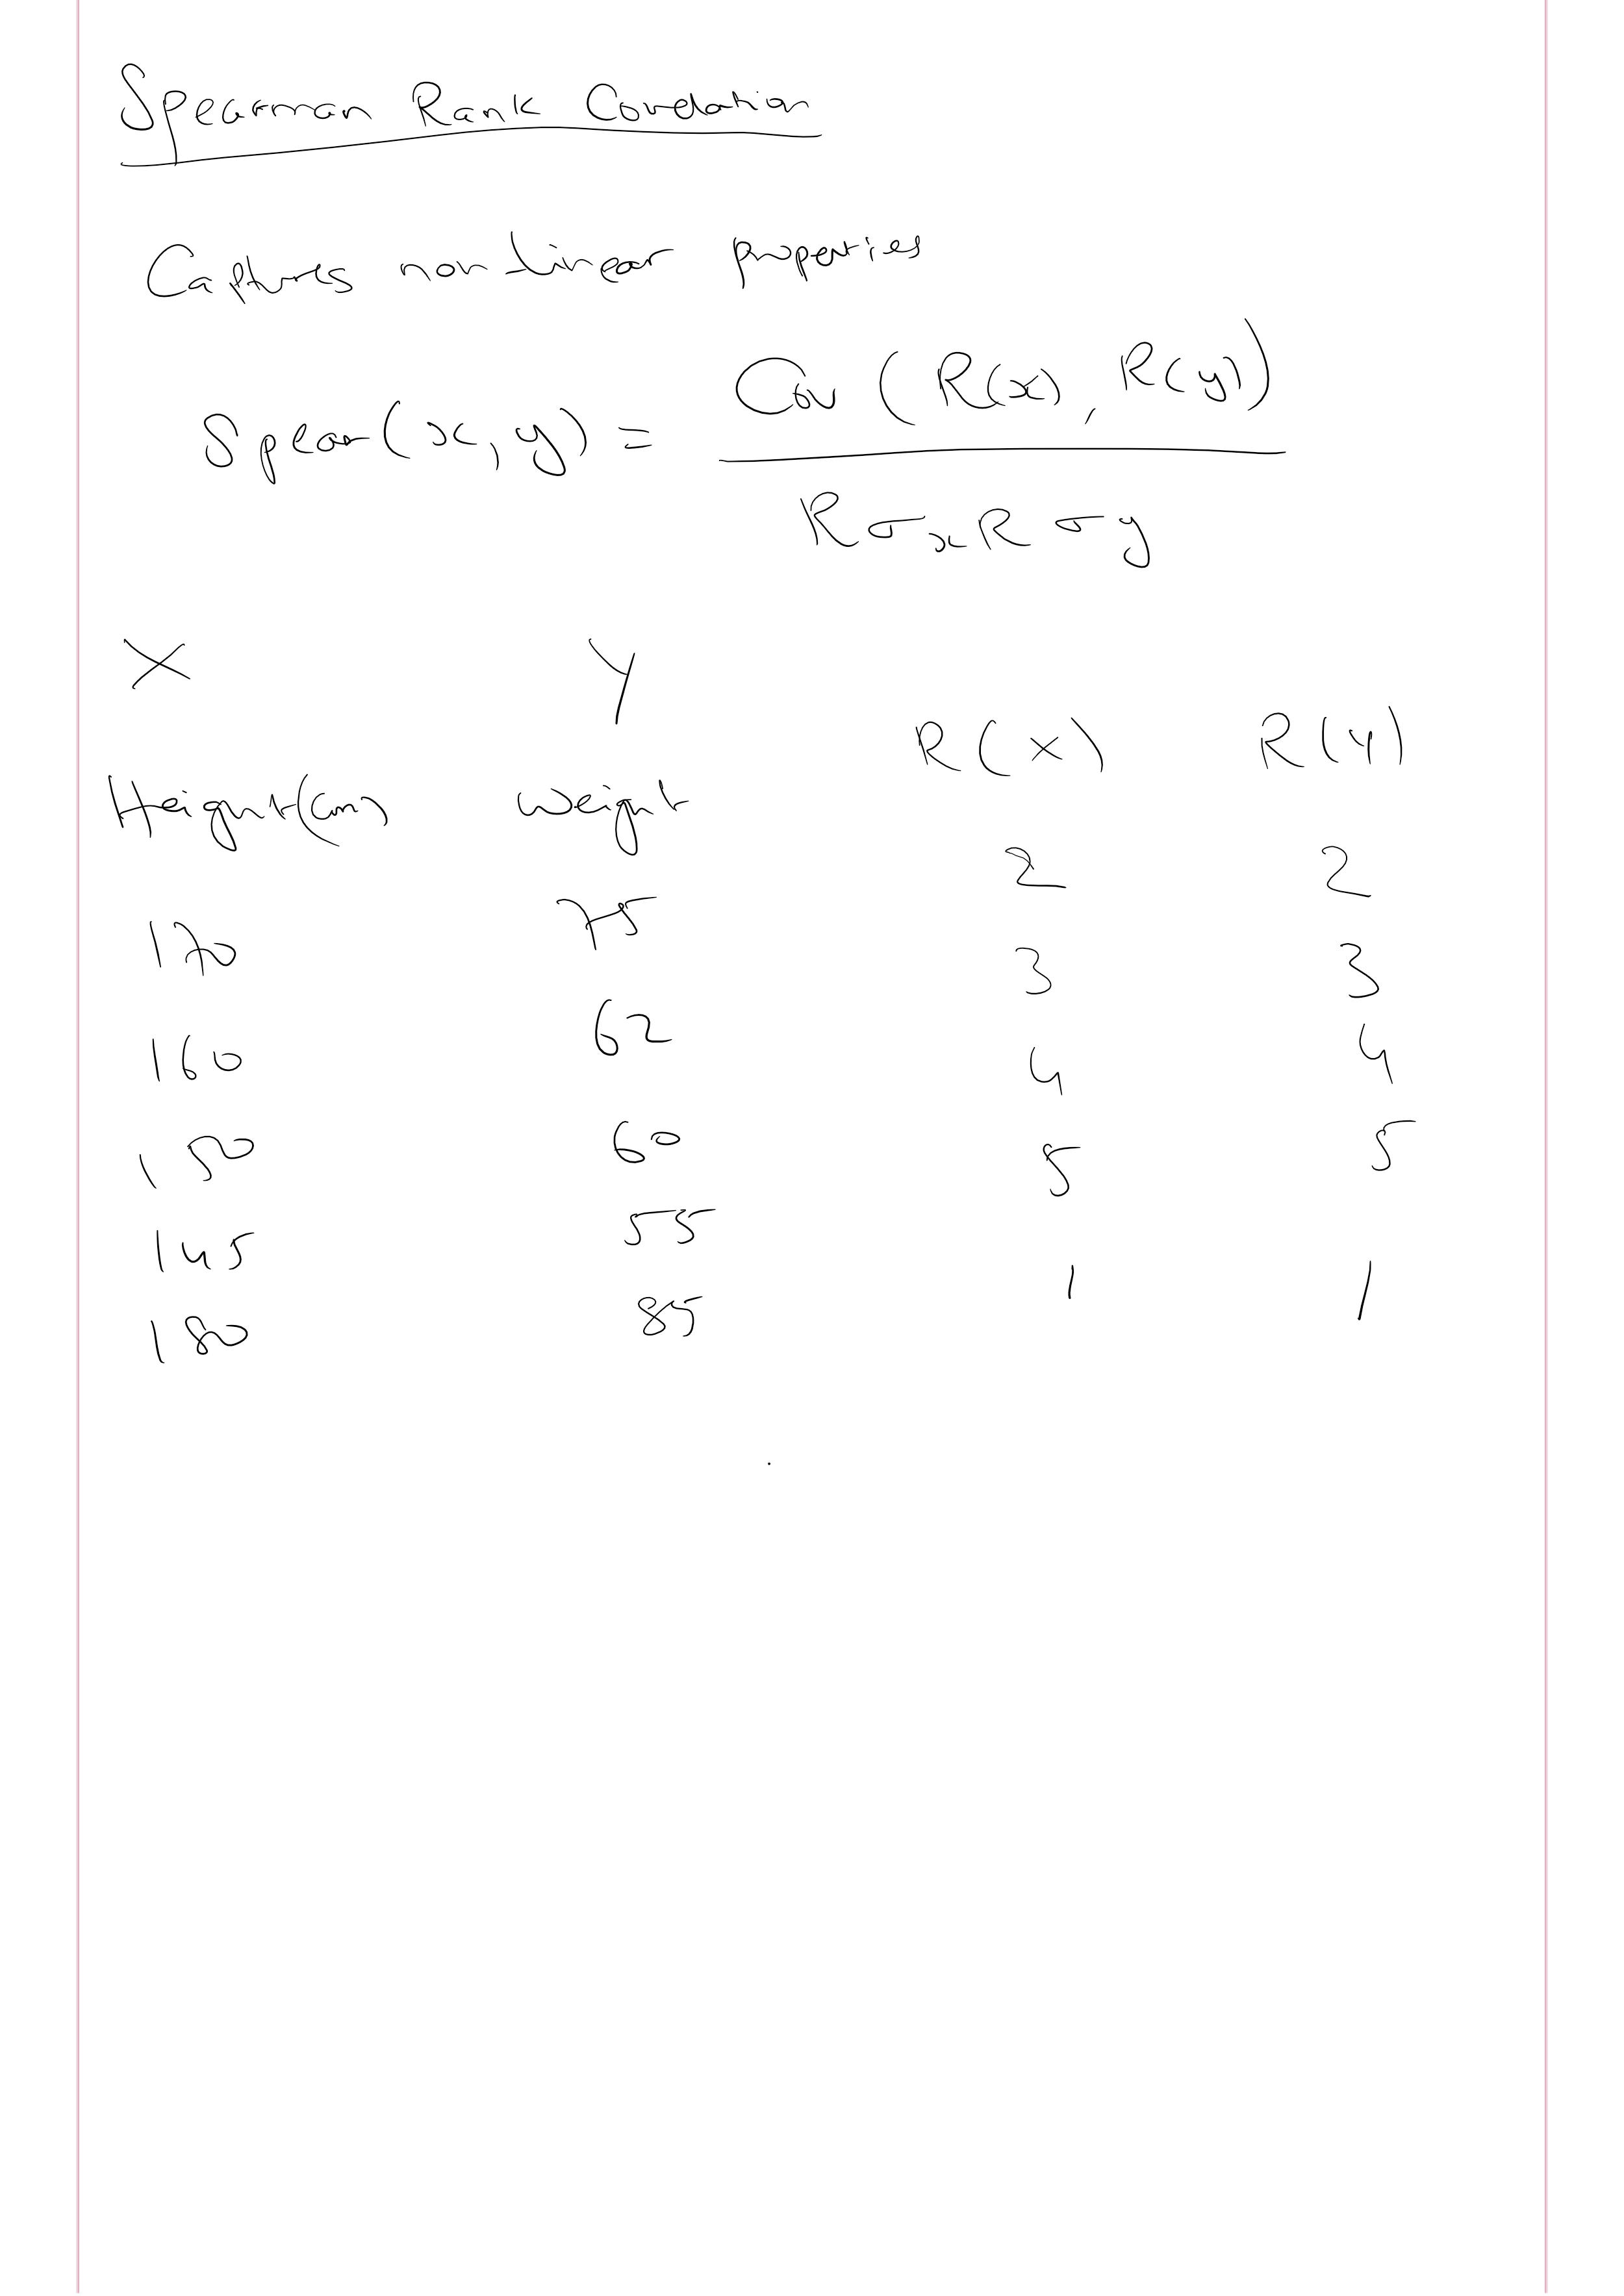 Spearman Rank Correlation
Captures non linear properties
Spear(x, y) = Cov (R(x), R(y))
Rσx Rσy
X Y
R(x) R(y)
Height(cm) weight
2 2
170 75
3 3
160 62
4 4
150 60
5 5
145 55
1 1
180 85